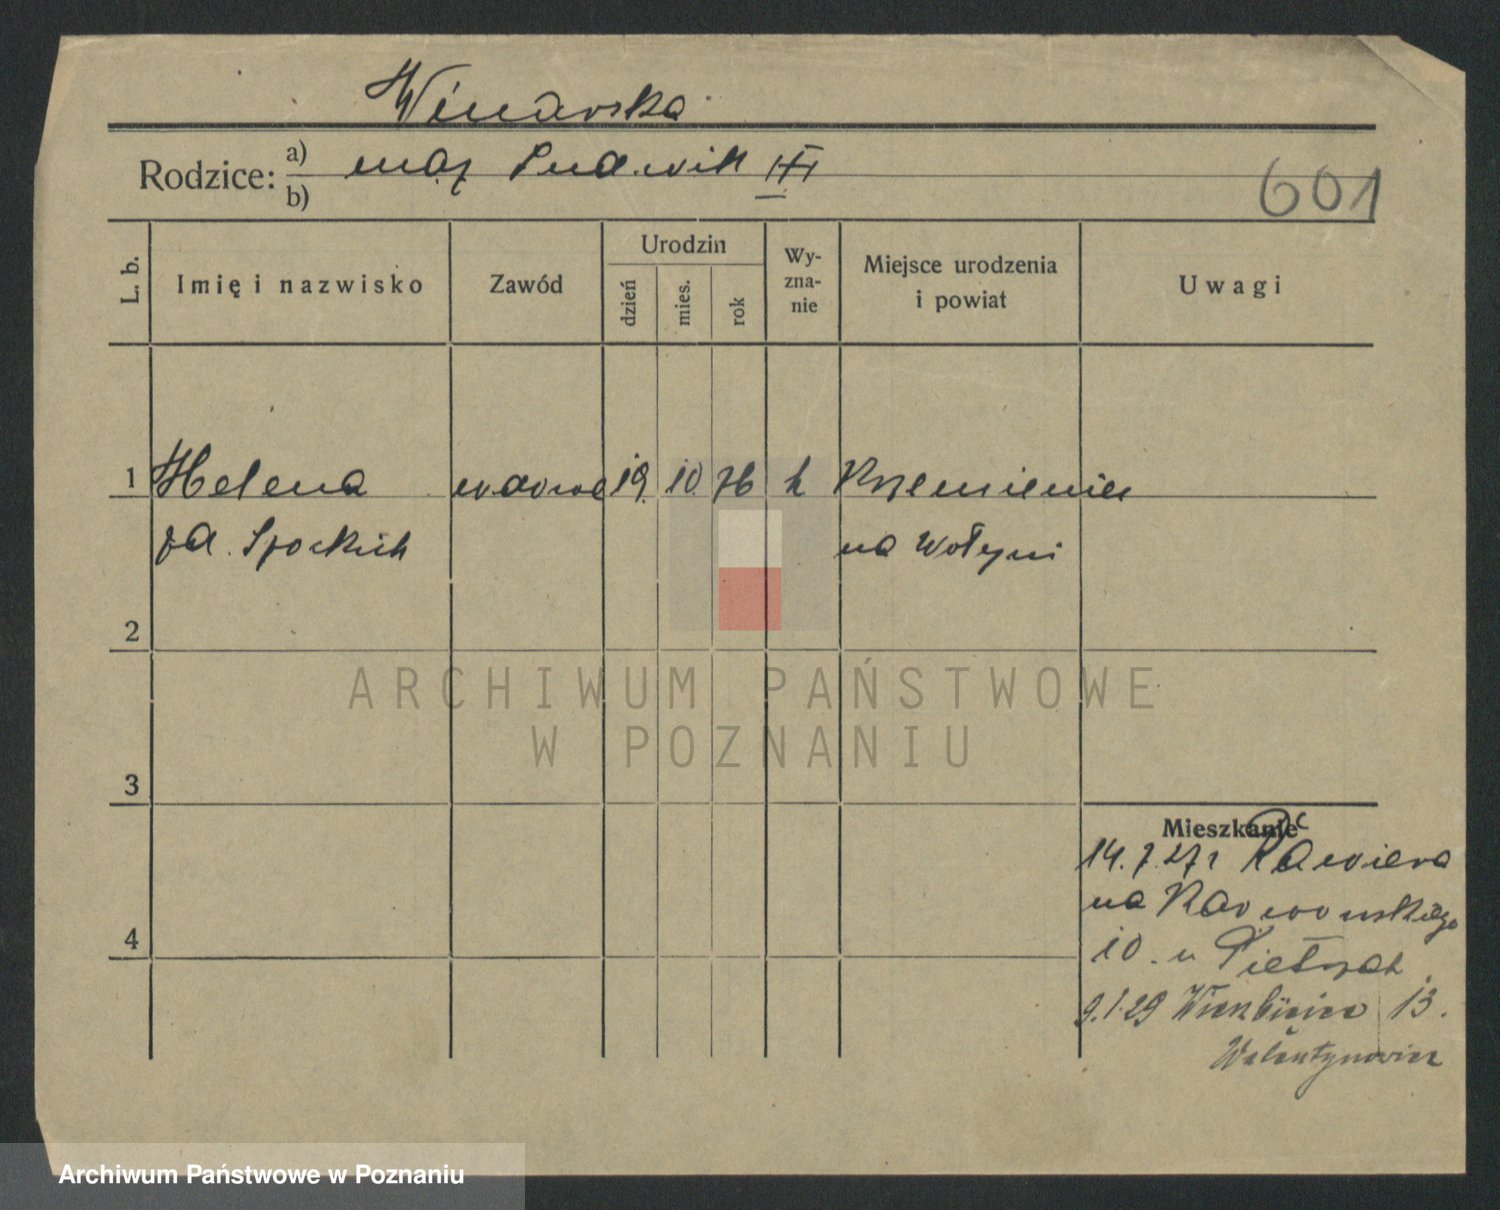 Winarska
Rodzice: a) mąż Ludwik
b)
601
L. b.
Imię i nazwisko
Zawód
Urodzin
dzień
mies.
rok
Wy-
zna-
nie
Miejsce urodzenia
i powiat
Uwagi
1 Helena wdowa 19. 10. 76 k Krzemieniec
na Wołyni
2
3
4
Mieszkanie
14.7.27r
na Karwowskiego
10. u Pietrzak
9.1.29 Wierzbięcice 13.
Walentynowicz
ARCHIWUM PAŃSTWOWE
W POZNANIU
Archiwum Państwowe w Poznaniu